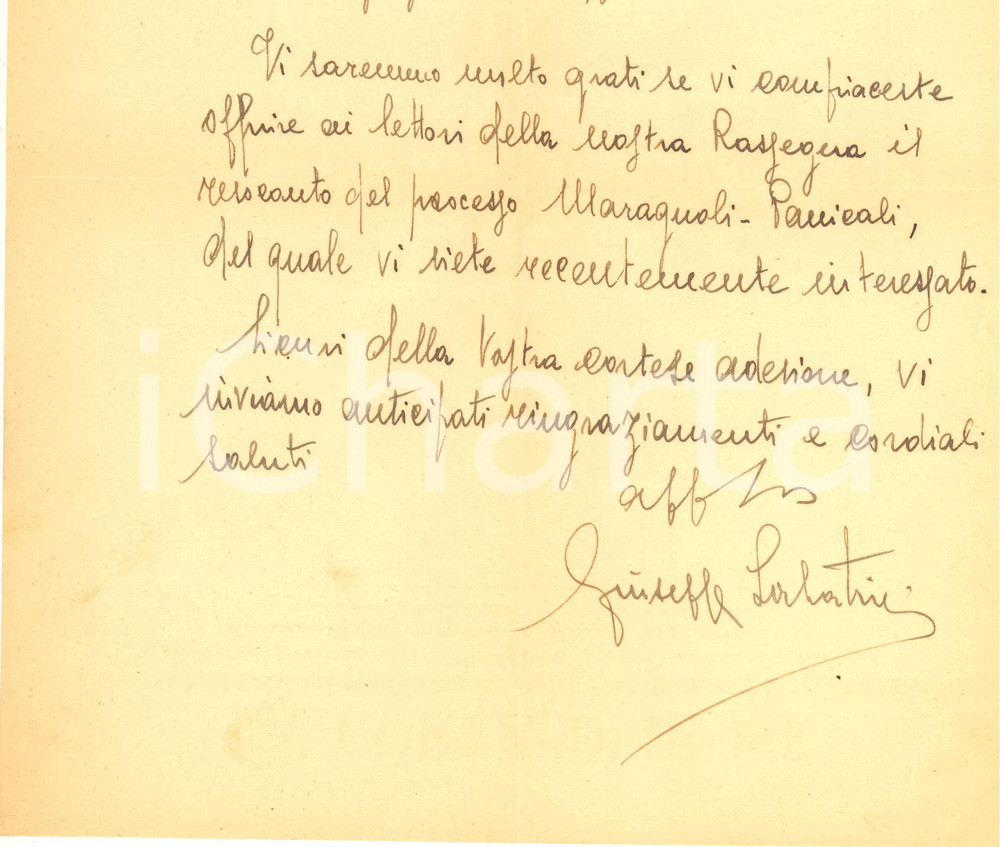 Vi saremmo molto grati se vi compiaceste
offrire ai lettori della nostra Rassegna il
resoconto del processo Maragnoli-Panicali,
del quale vi siete recentemente interessato.
Sicuri della Vostra cortese adesione, vi
inviamo anticipati ringraziamenti e cordiali
saluti
aff
Giuseppe Sabatini
iCharta